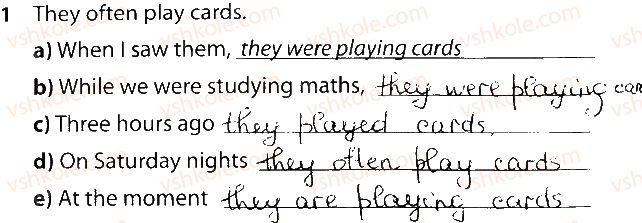 1 They often play cards.
a) When I saw them, they were playing cards
b) While we were studying maths, they were playing car
c) Three hours ago they played cards.
d) On Saturday nights they often play cards
e) At the moment they are playing cards